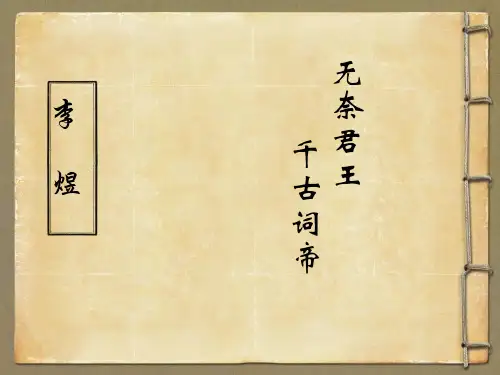 无奈君王
千古词帝
李煜